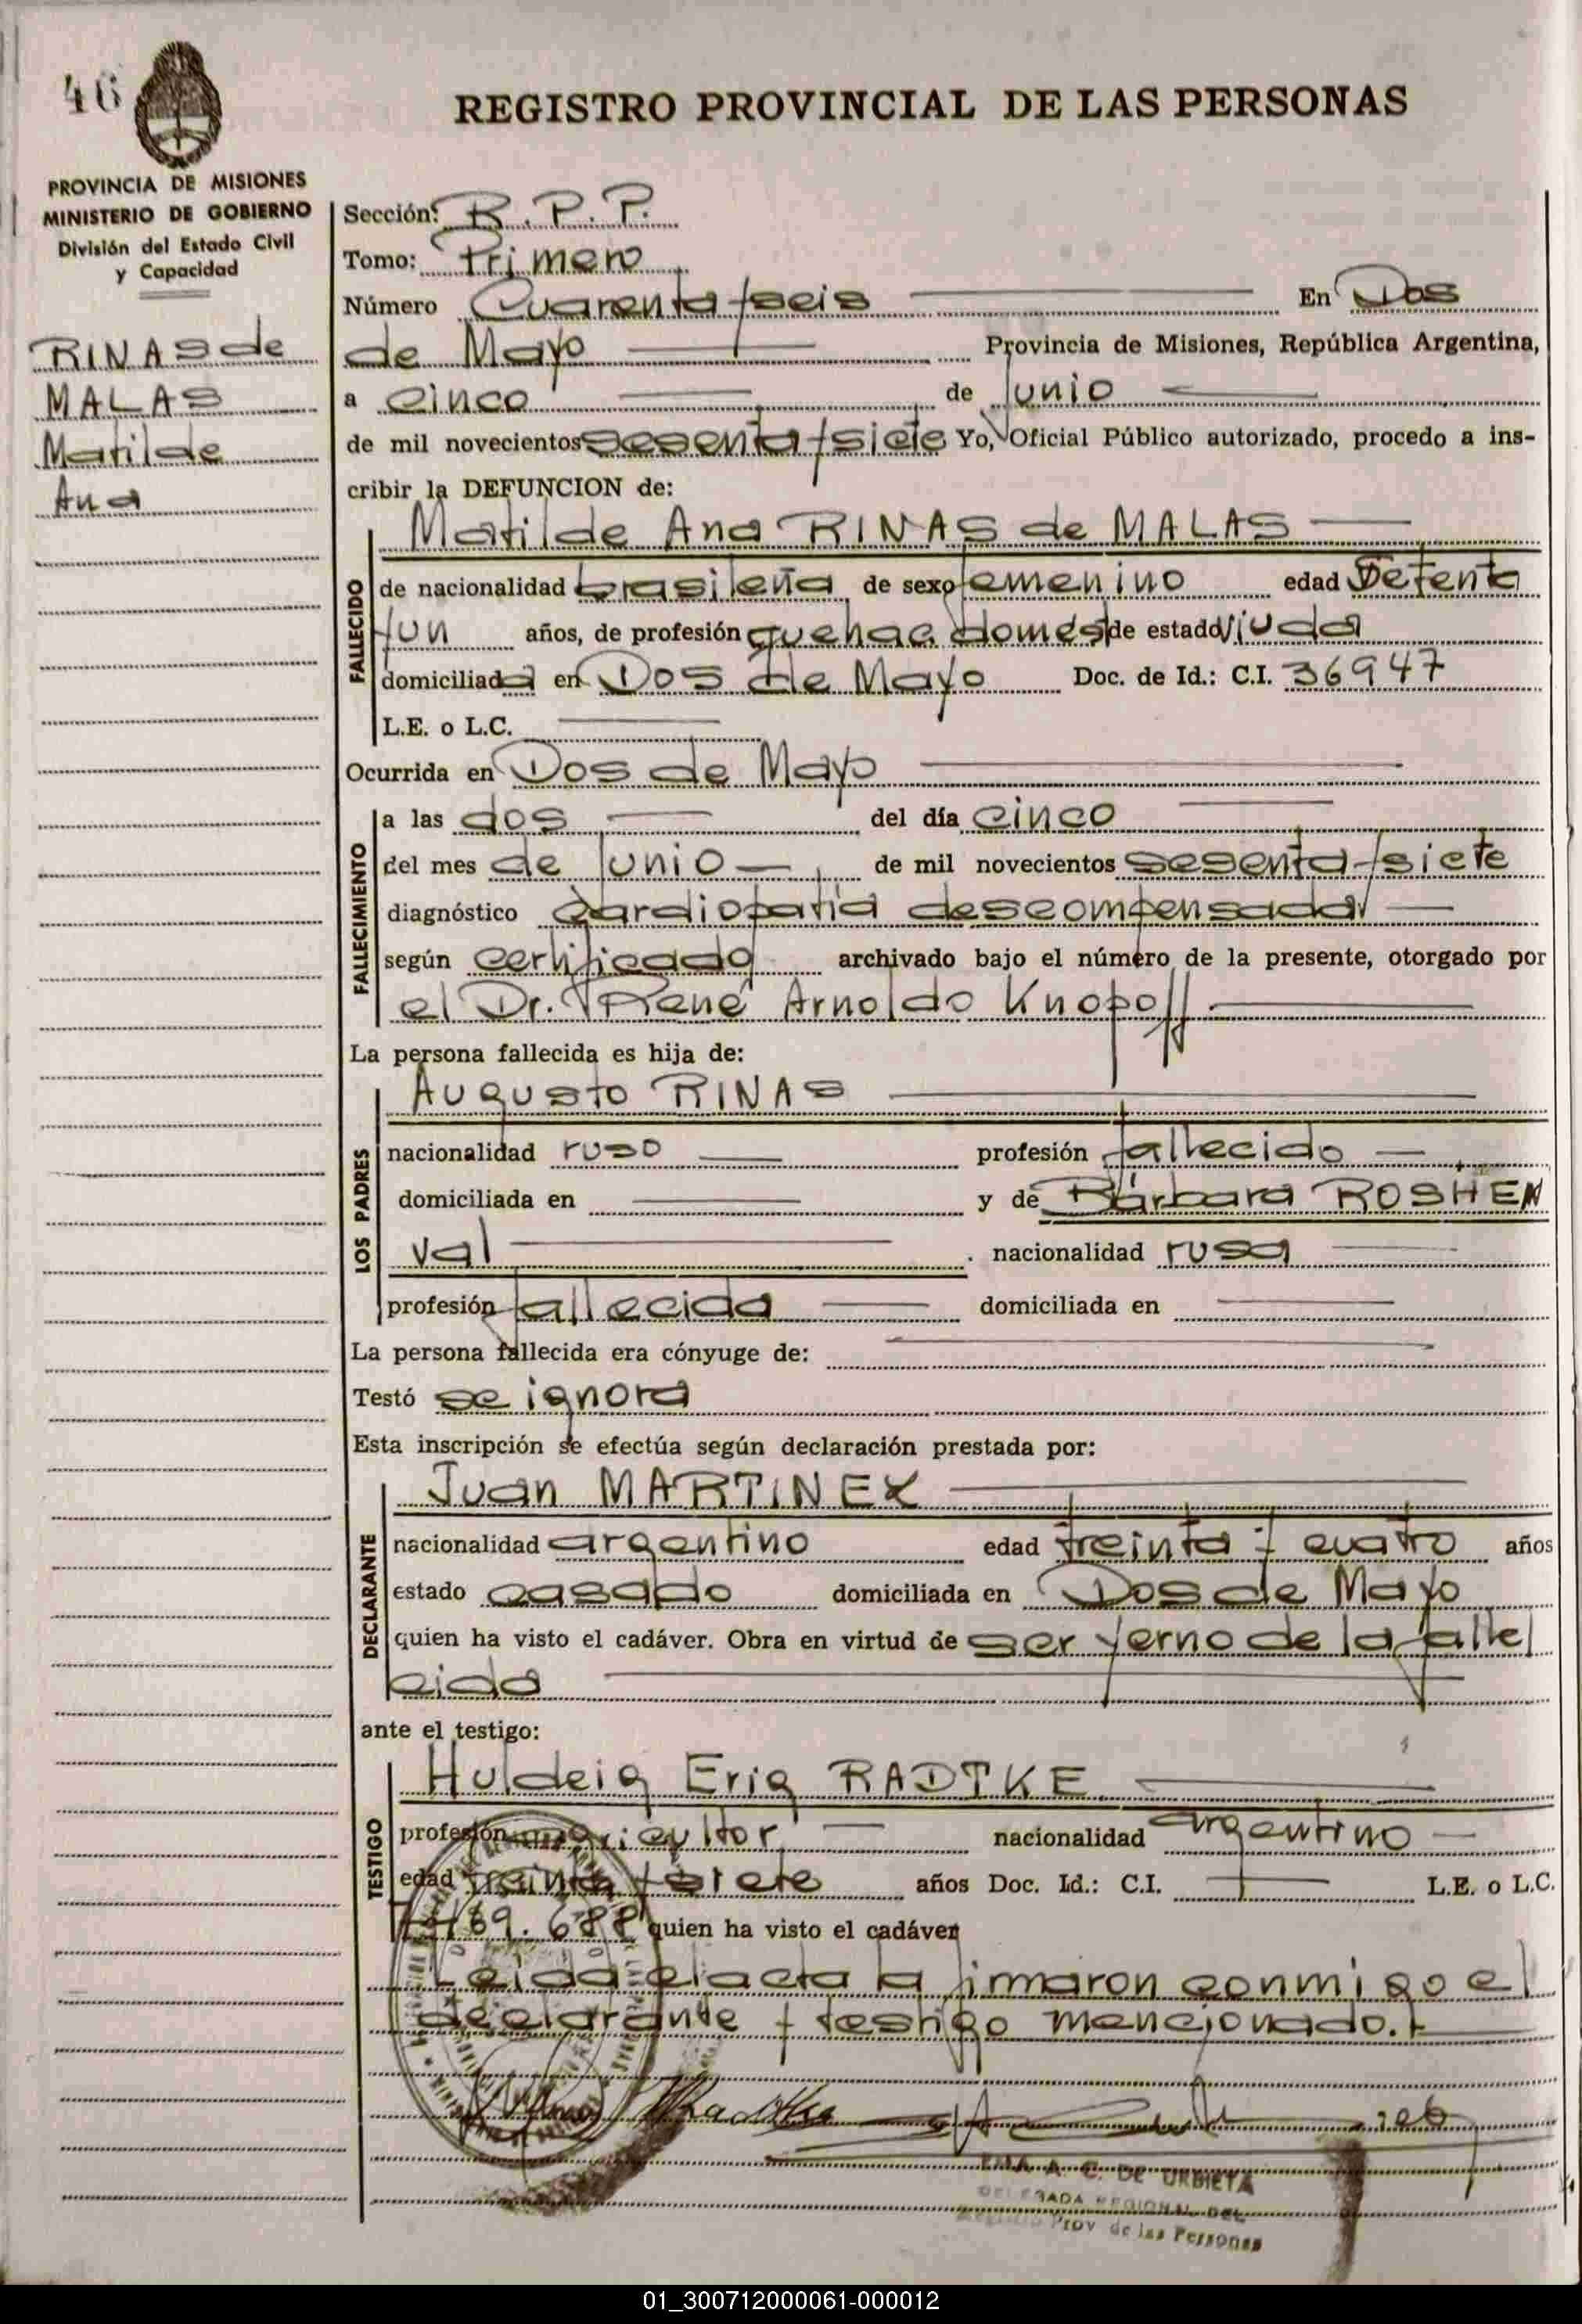 46
REGISTRO PROVINCIAL DE LAS PERSONAS
PROVINCIA DE MISIONES
MINISTERIO DE GOBIERNO
División del Estado Civil
y Capacidad
RINAS de
MALAS
Matilde
Ana
Sección: R. P. P.
Tomo: Primero
Número Cuarenta y seis En Dos
de Mayo Provincia de Misiones, República Argentina,
a cinco de junio
de mil novecientos sesenta y siete Yo, Oficial Público autorizado, procedo a ins-
cribir la DEFUNCION de:
FALLECIDO
Matilde Ana RINAS de MALAS
de nacionalidad brasileña de sexo femenino edad setenta
y un años, de profesión quehac. domést de estado viuda
domiciliada en Dos de Mayo Doc. de Id.: C.I. 36947
L.E. o L.C.
Ocurrida en Dos de Mayo
FALLECIMIENTO
a las dos del día cinco
del mes de junio de mil novecientos sesenta y siete
diagnóstico Cardiopatia descompensada
según certificado archivado bajo el número de la presente, otorgado por
el Dr. René Arnoldo Knopoff
La persona fallecida es hija de:
LOS PADRES
Augusto RINAS
nacionalidad ruso profesión fallecido
domiciliada en y de Bárbara ROSHEN
val nacionalidad rusa
profesión fallecida domiciliada en
La persona fallecida era cónyuge de:
Testó se ignora
Esta inscripción se efectúa según declaración prestada por:
DECLARANTE
Juan MARTINEZ
nacionalidad argentino edad treinta y cuatro años
estado casado domiciliada en Dos de Mayo
quien ha visto el cadáver. Obra en virtud de ser yerno de la falle
cida
ante el testigo:
TESTIGO
Huldeig Erig RADTKE
profesión agricultor nacionalidad argentino
edad treinta y siete años Doc. Id.: C.I. L.E. o L.C.
7.469.688 quien ha visto el cadáver
Leida el acta la firmaron conmigo el
declarante y testigo mencionado.
Radtke
A. C. DE URBIETA
DELEGADA REGIONAL DEL
Prov de las Personas
01_300712000061-000012